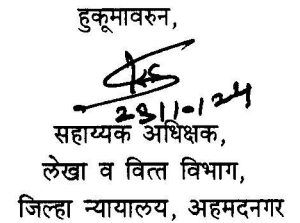 हुकूमावरुन,
सहाय्यक अधिक्षक,
लेखा व वित्त विभाग,
जिल्हा न्यायालय, अहमदनगर